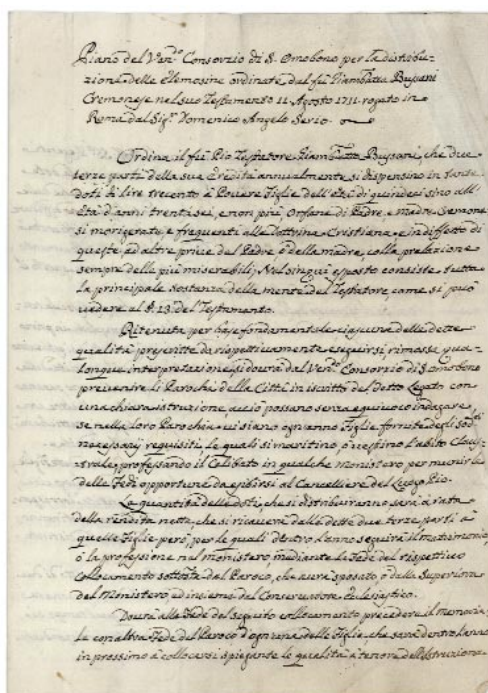 Piano del Ven.do Consorzio di S. Omobono per la distribu-
zione delle Elemosine ordinate dal fu Giambatta Bussani
Cremonese nel suo Testamento 11. Agosto 1711. rogato in
Roma dal Sig.r Domenico Angelo Serio.
Ordina il fu Pio Testatore Giambatta Bussani, che due
terze parti della sua Eredità annualmente si dispensino in tante
doti di lire trecento a Povere Figlie dell'età di quindeci sino all'
Età d'anni trentasei, e non più, Orfane di Padre, e madre, Cremone-
si morigerate, e frequenti alla Dottrina Cristiana, e in diffetto di
queste, ad altre prive del Padre, o della madre, colla prelazione
sempre delle più miserabili; Nel sin qui esposto consiste tutta
la principale sostanza della mente del Testatore, come si può
vedere al §. 13. del Testamento.
Ritenuta per base fondamentale ciascuna delle dette
qualità prescritte da rispettivamente eseguirsi, rimossa qua-
lonque interpretazione, si dovrà dal Ven.do Consorzio di S. Omobono
prevenire li Parochi della Città in iscritto del detto Legato con
una chiara istruzione, acciò possano senza equivoco indagare,
se nella loro Parochia vi siano ogn'anno Figlie fornite degli sod.ti
necessarj requisiti, le quali si maritino, o vestino l'abito Clau-
strale, professando il Celibato in qualche monistero, per munirle
delle Fedi opportune da esibirsi al Cancelliere del Luogo Pio.
La quantità delle doti, che si distribuiranno sarà a rata
della rendita netta, che si ricaverà dalle dette due terze parti a
quelle Figlie però, per le quali dentro l'anno seguirà il matrimonio,
o la professione nel monistero, mediante la Fede del rispettivo
collocamento sottos.ta dal Paroco, che avrà sposato, o dalla Superiora
del Monistero, ed insieme dal Conservatore Ecclesiastico.
Dovrà alla Fede del seguito collocamento precedere il memoria-
le con altra Fede del Paroco d'ognuna delle Figlie, che sarà dentro l'anno
in prossimo a collocarsi spiegante le qualità a tenore dell'Istruzione